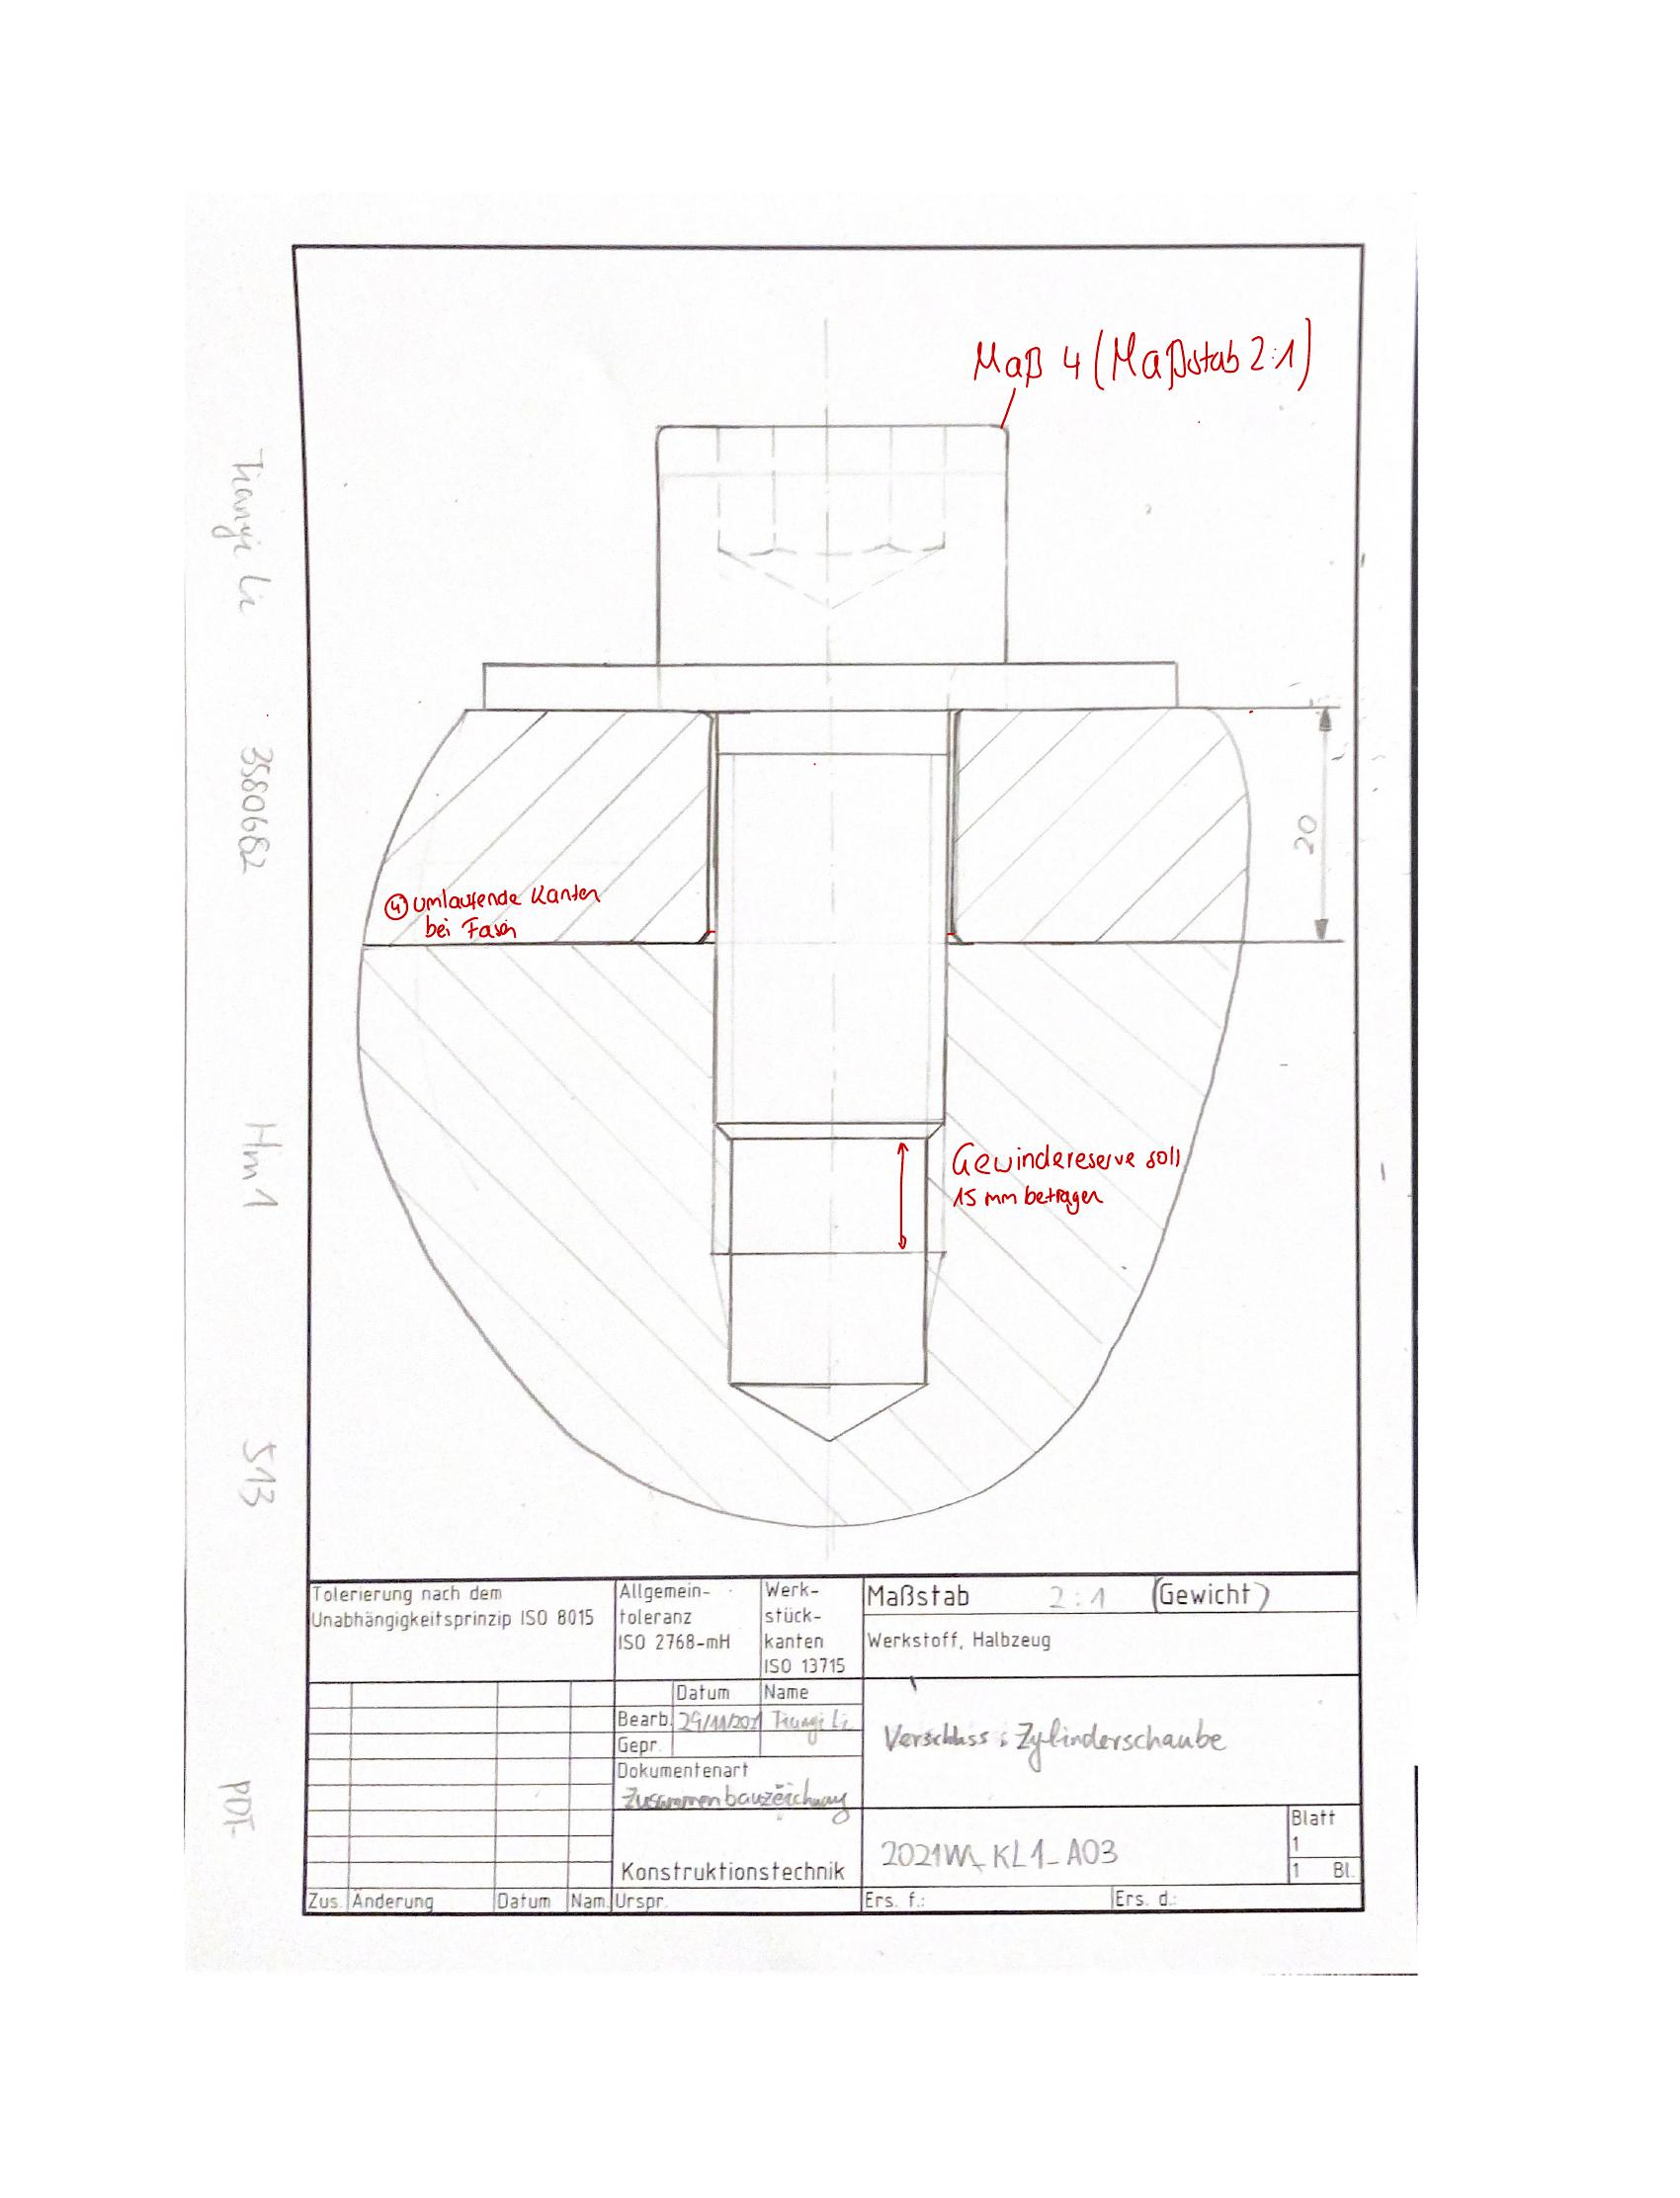 Maß 4 (Maßstab 2:1)
Tianyi Li 3580682 Hm1 513 PDT-
20
④ umlaufende Kanten
bei Fasen
Gewindereserve soll
15 mm betragen
Tolerierung nach dem
Unabhängigkeitsprinzip ISO 8015
Allgemein-
toleranz
ISO 2768-mH
Werk-
stück-
kanten
ISO 13715
Maßstab 2:1 (Gewicht)
Werkstoff, Halbzeug
Datum Name
Bearb. Tianyi Li
Gepr.
Dokumentenart
Zusammenbauzeichnung
Verschluss: Zylinderschaube
Konstruktionstechnik
KL1_A03
Blatt
1
1 Bl.
Zus. Änderung Datum Nam. Urspr. Ers. f.: Ers. d.: